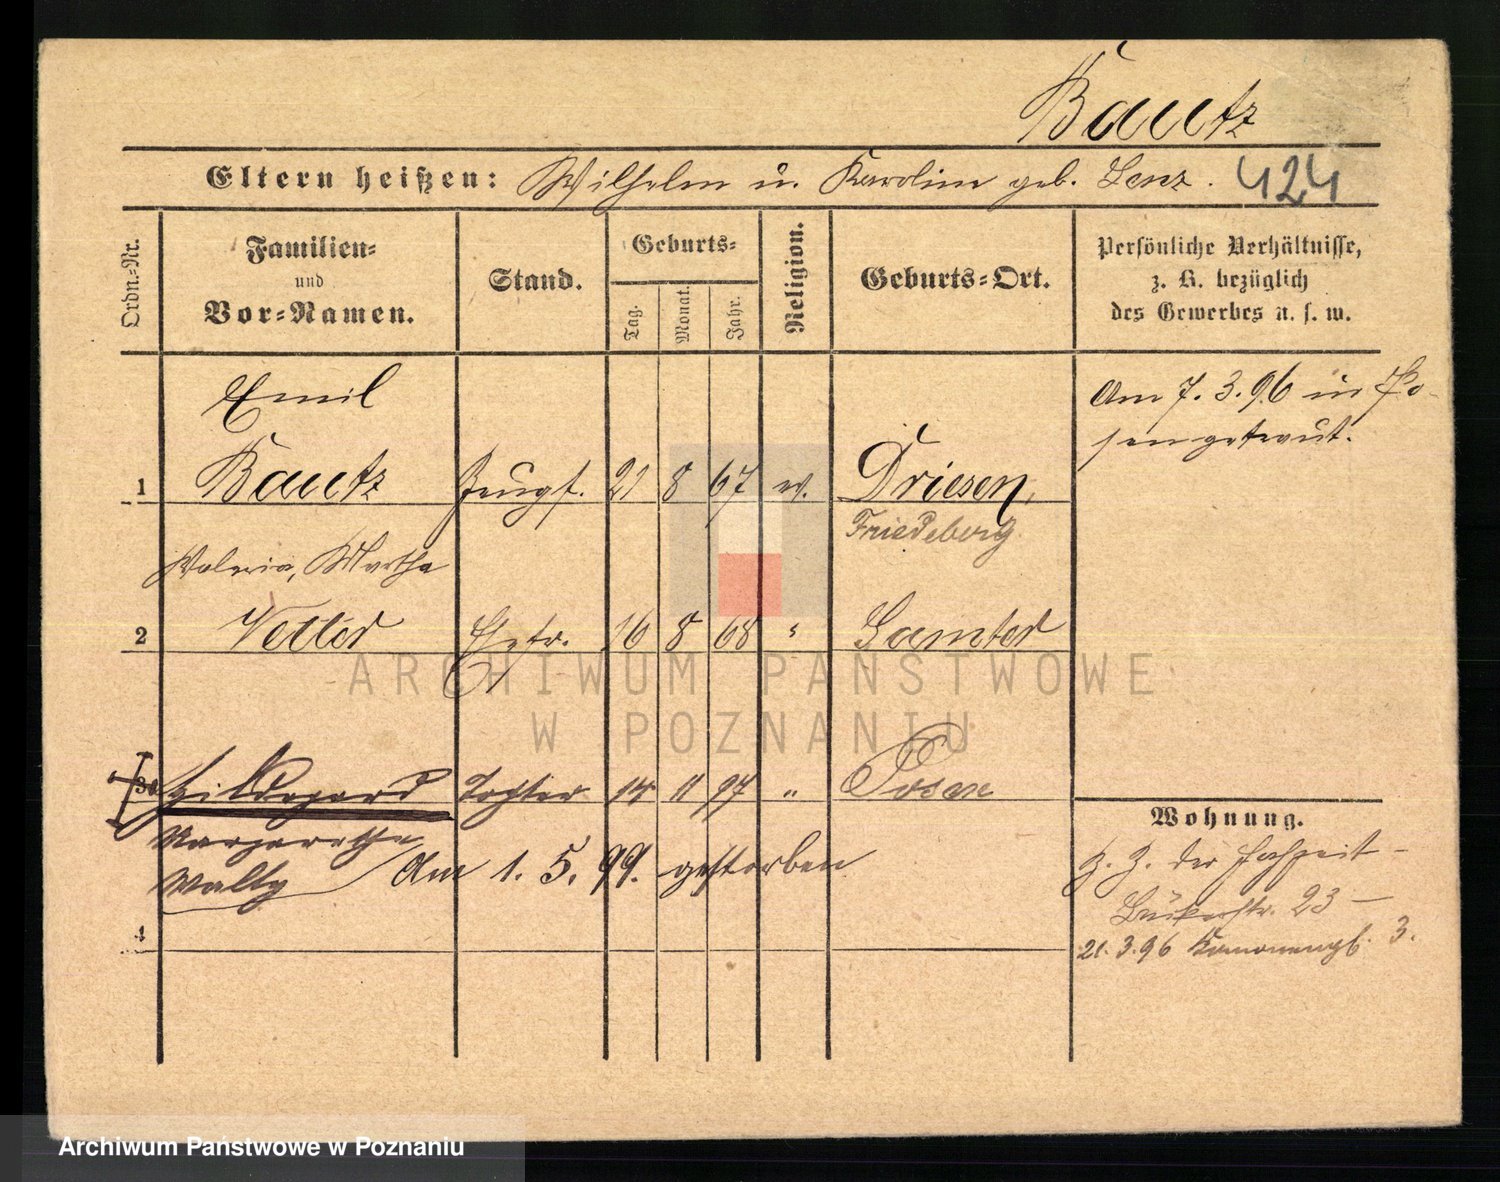 Bautz
Eltern heißen: Wilhelm u. Karoline geb. Lenz. 424
Ordn.-Nr.
Familien-
und
Vor-Namen.
Stand.
Geburts-
Tag.
Monat.
Jahr.
Religion.
Geburts-Ort.
Persönliche Verhältnisse,
z. B. bezüglich
des Gewerbes u. s. w.
Emil
1 Bautz 21 8 67 ev. Driesen,
Friedeberg
Am 7. 3. 96 in Po-
sen getraut.
Valeria, Martha
2 Vetter Ehefr. 16 8 68 " Samter
ARCHIWUM PAŃSTWOWE
W POZNANIU
3 Hildegard Tochter 14 11 97 " Posen
Margarethe
Wally Am 1. 5. 99. gestorben
4
Wohnung.
z. Z. der Hochzeit -
Bäckerstr. 23 -
21. 3. 96 Kanonenpl. 3.
Archiwum Państwowe w Poznaniu